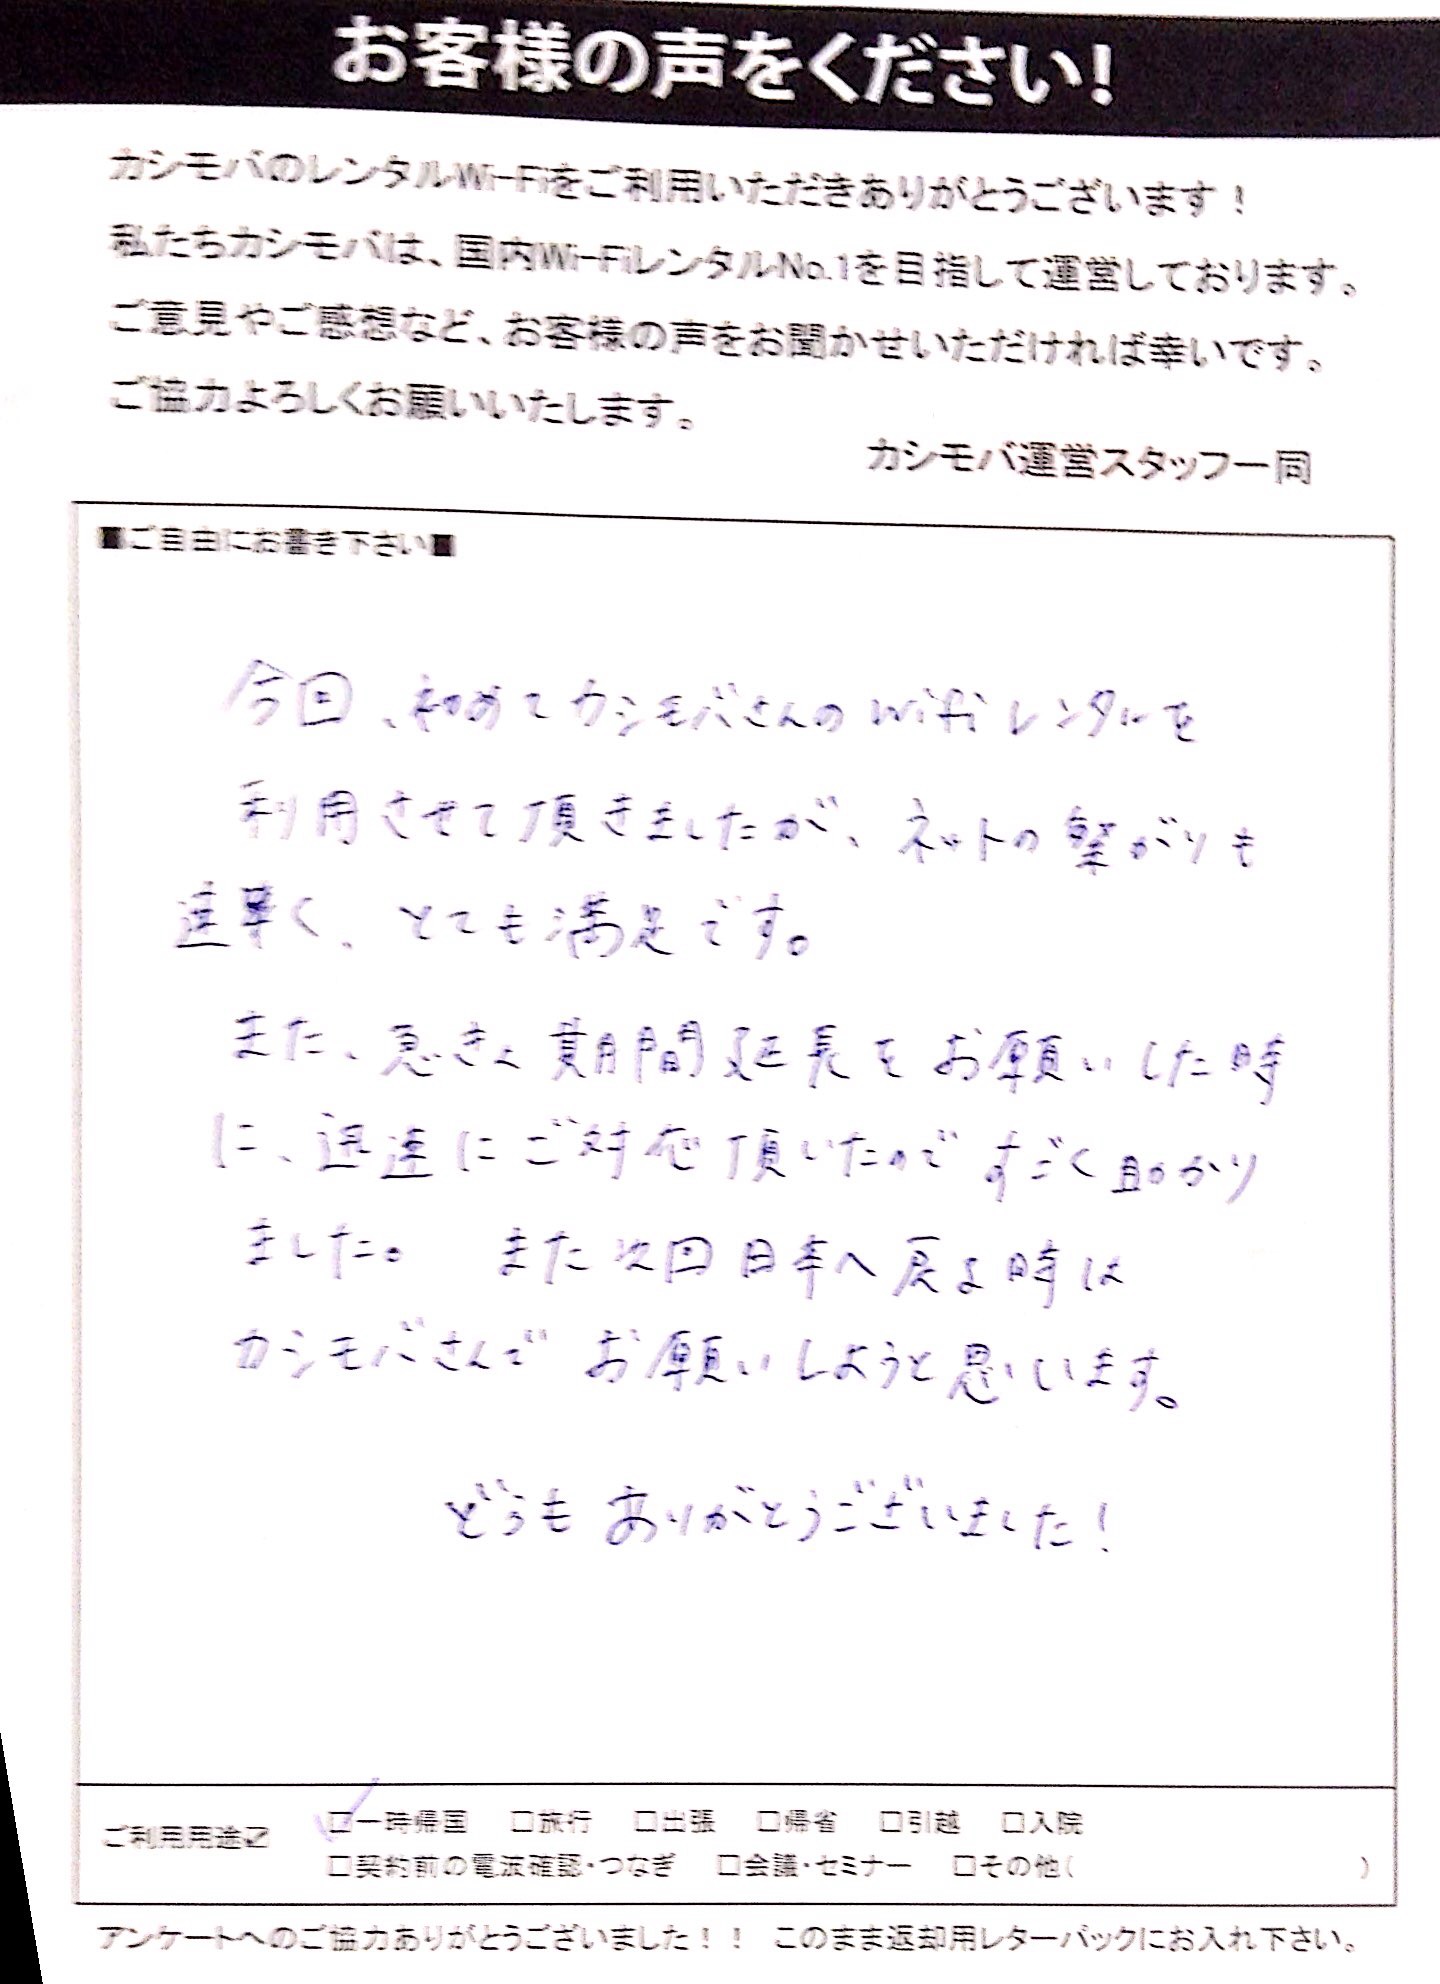 お客様の声をください!
カシモバのレンタルWi-Fiをご利用いただきありがとうございます！
私たちカシモバは、国内Wi-FiレンタルNo.1を目指して運営しております。
ご意見やご感想など、お客様の声をお聞かせいただければ幸いです。
ご協力よろしくお願いいたします。
カシモバ運営スタッフ一同
■ご自由にお書き下さい■
今回、初めてカシモバさんのWifiレンタルを
利用させて頂きましたが、ネットの繋がりも
速早く、とても満足です。
また、急きょ期間延長をお願いした時
に、迅速にご対応頂いたのですごく助かり
ました。 また次回日本へ戻る時は
カシモバさんでお願いしようと思います。
どうもありがとうございました！
ご利用用途☑ □一時帰国 □旅行 □出張 □帰省 □引越 □入院
□契約前の電波確認・つなぎ □会議・セミナー □その他( )
アンケートへのご協力ありがとうございました！！ このまま返却用レターパックにお入れ下さい。